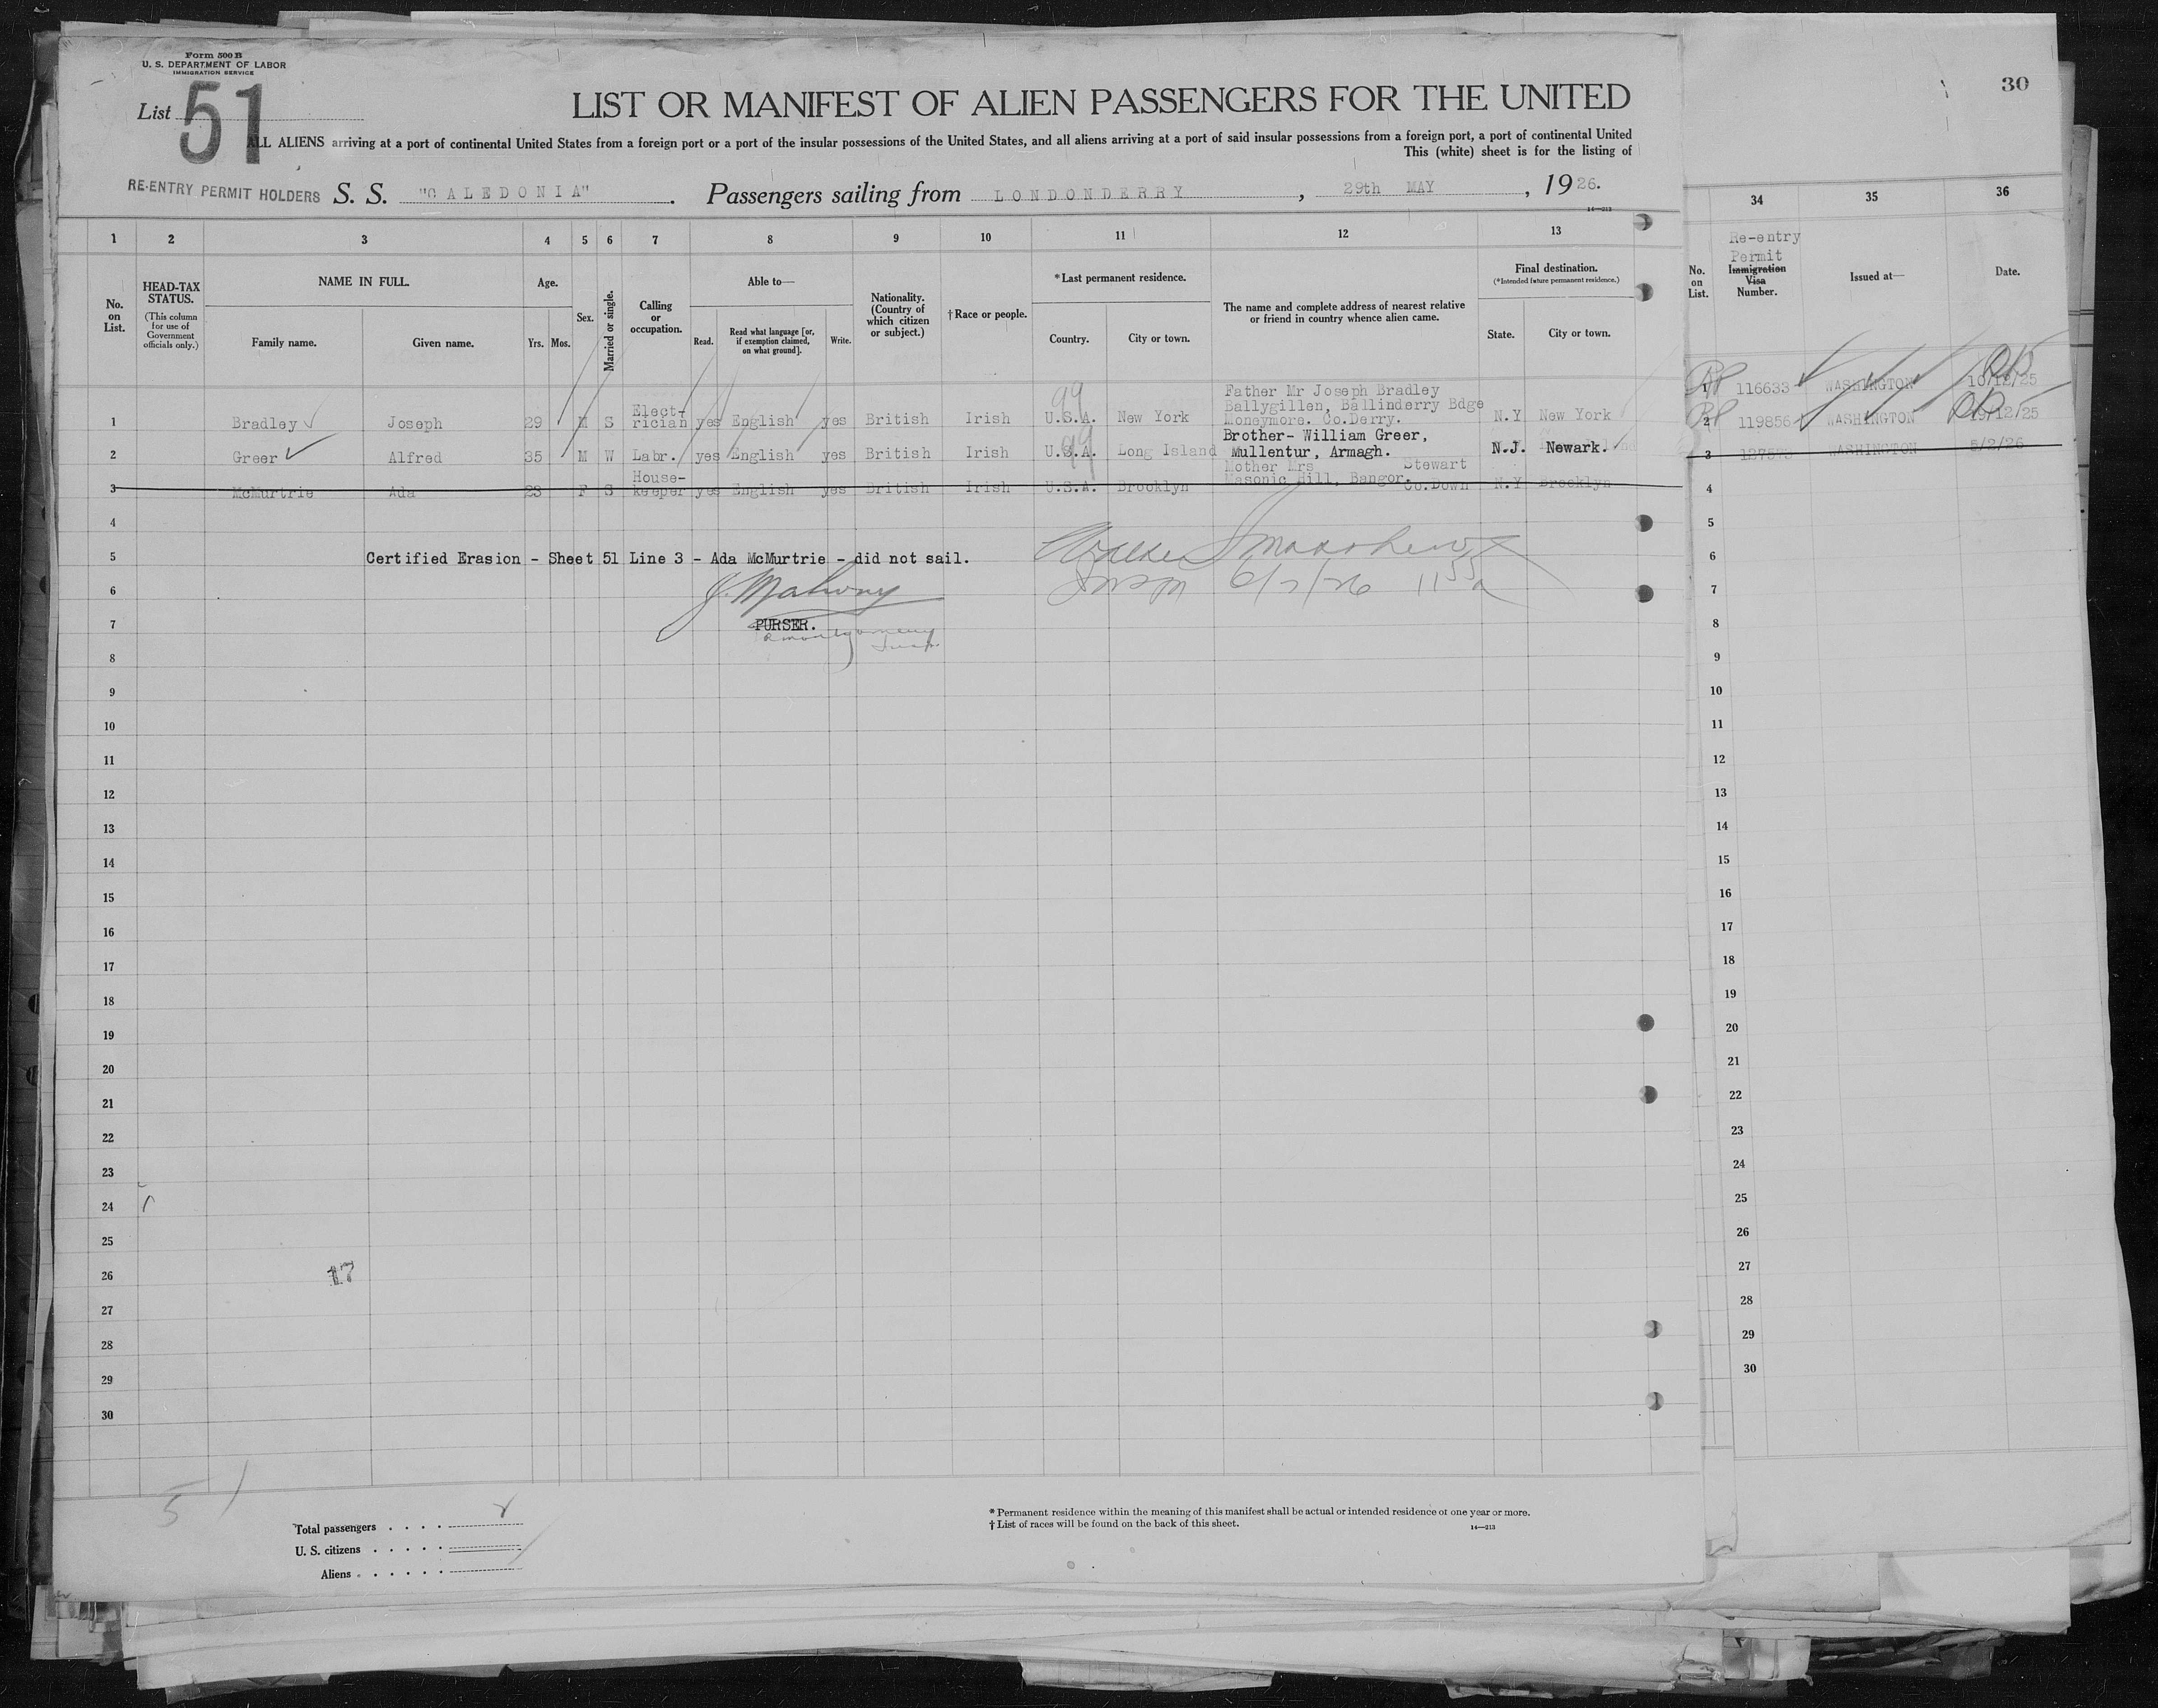 Form 500 B
U. S. DEPARTMENT OF LABOR
IMMIGRATION SERVICE
List 51
30
LIST OR MANIFEST OF ALIEN PASSENGERS FOR THE UNITED
ALL ALIENS arriving at a port of continental United States from a foreign port or a port of the insular possessions of the United States, and all aliens arriving at a port of said insular possessions from a foreign port, a port of continental United
This (white) sheet is for the listing of
RE-ENTRY PERMIT HOLDERS S. S. "CALEDONIA". Passengers sailing from LONDONDERRY, 29th MAY, 1926.
14—213
1 2 3 4 5 6 7 8 9 10 11 12 13 34 35 36
No. on List.
HEAD-TAX STATUS.
(This column for use of Government officials only.)
NAME IN FULL.
Family name. Given name.
Age.
Yrs. Mos.
Sex.
Married or single.
Calling or occupation.
Able to—
Read. Read what language [or, if exemption claimed, on what ground]. Write.
Nationality. (Country of which citizen or subject.)
† Race or people.
*Last permanent residence.
Country. City or town.
The name and complete address of nearest relative or friend in country whence alien came.
Final destination.
(*Intended future permanent residence.)
State. City or town.
No. on List.
Re-entry Permit
Immigration Visa Number.
Issued at—
Date.
1 Bradley Joseph 29 M S Elect-rician yes English yes British Irish 99 U.S.A. New York Father Mr Joseph Bradley Ballygillen, Ballinderry Bdge Moneymore. Co.Derry. N.Y New York
RP 1 116633 WASHINGTON 10/12/25 OK
2 Greer Alfred 35 M W Labr. yes English yes British Irish 99 U.S.A. Long Island Brother- William Greer, Mullentur, Armagh. N.J. Newark.
RP 2 119856 WASHINGTON 19/12/25 OK
3 McMurtrie Ada 23 F S House-keeper yes English yes British Irish U.S.A. Brooklyn Mother Mrs Stewart Masonic Hill, Bangor. Co.Down N.Y Brooklyn
3 WASHINGTON 5/2/26
4
5 Certified Erasion - Sheet 51 Line 3 - Ada McMurtrie - did not sail.
6 J. Mahony
6/7/26 1155a
7 PURSER.
8
9
10
11
12
13
14
15
16
17
18
19
20
21
22
23
24
25
26
17
27
28
29
30
4
5
6
7
8
9
10
11
12
13
14
15
16
17
18
19
20
21
22
23
24
25
26
27
28
29
30
51
Total passengers . . . .
U. S. citizens . . . . .
Aliens . . . . . .
* Permanent residence within the meaning of this manifest shall be actual or intended residence of one year or more.
† List of races will be found on the back of this sheet.
14—213